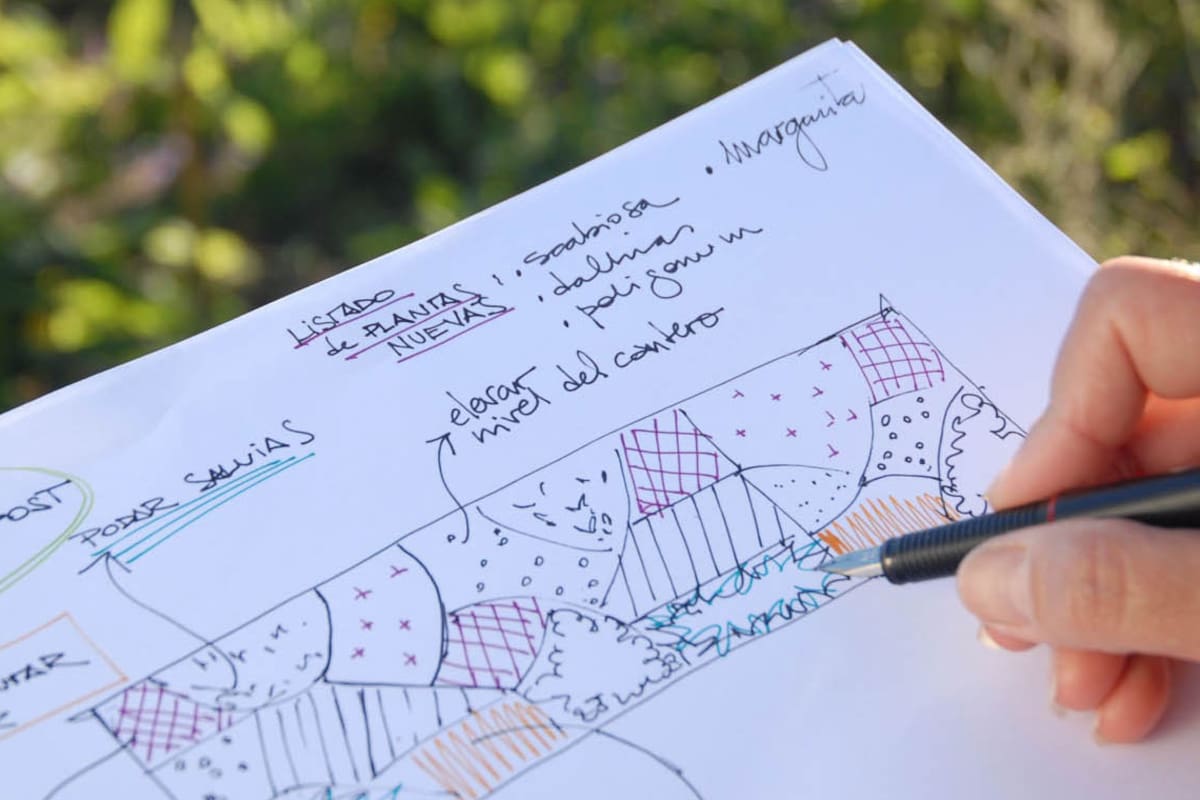 LISTADO
de PLANTAS : . scabiosa . margarita
NUEVAS . dalhias
. poligonum
elevar
nivel del cantero
PODAR SALVIAS
OST